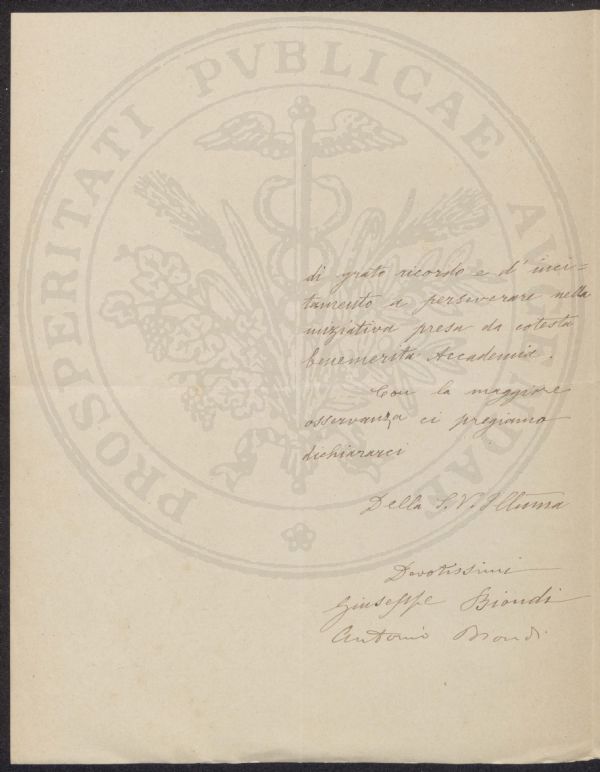 PROSPERITATI PVBLICAE AVGENDAE
di grato ricordo e d' inci-
tamento a perseverare nella
iniziativa presa da cotesta
benemerita Accademia.
Con la maggiore
osservanza ci pregiamo
dichiararci
Della S. V. Illuma
Devotissimi
Giuseppe Biondi
Antonio Biondi